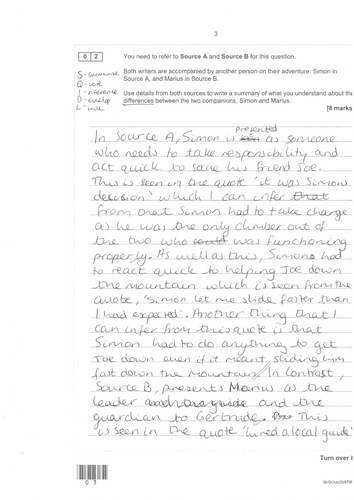 3
0 2
You need to refer to Source A and Source B for this question.
Both writers are accompanied by another person on their adventure: Simon in
Source A, and Marius in Source B.
Use details from both sources to write a summary of what you understand about the
differences between the two companions, Simon and Marius.
[8 marks
S - ummarise
Q - uote
I - nference
D - evelop
L - ink
presented
In Source A, Simon is seen as someone
who needs to take responsibility and
act quick to save his friend Joe.
This is seen in the quote 'it was Simons
decision' which I can infer that
from that Simon had to take charge
as he was the only climber out of
the two who could was functioning
properly. As well as this, Simons had
to react quick to helping Joe down
the mountain which is seen from the
quote, 'Simon let me slide faster than
I had expected'. Another thing that I
can infer from this quote is that
Simon had to do anything to get
Joe down even if it meant, sliding him
fast down the mountain // In contrast,
Source B, presents Marius as the
leader and the guide and the
guardian to Gertrude. This
is seen in the quote 'hired a local guide'
Turn over
0 3